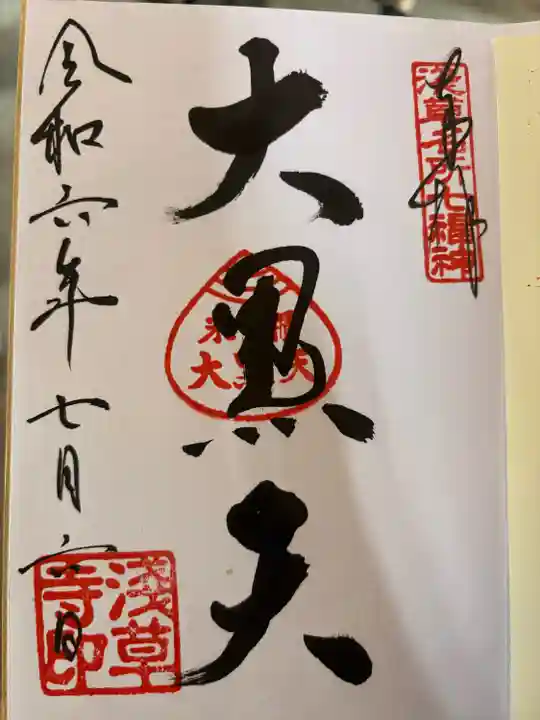 奉拝
浅草名所七福神
大黒天
米びつ
大黒天
令和六年七月六日
浅草
寺印